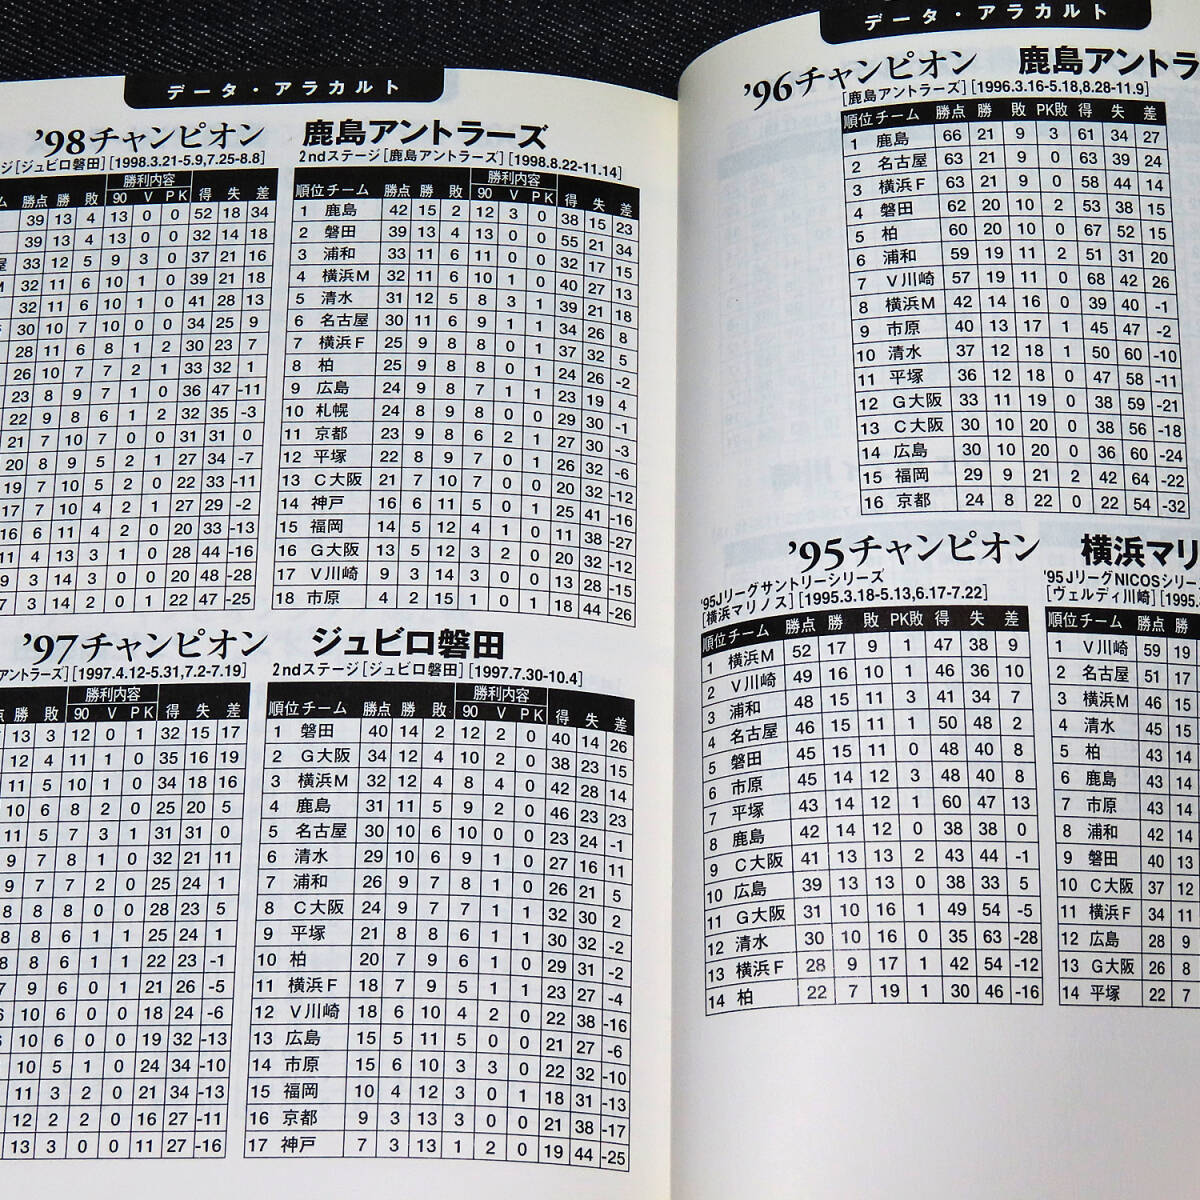 データ・アラカルト
'98チャンピオン 鹿島アントラーズ
[ジュビロ磐田] [1998.3.21-5.9,7.25-8.8]
勝利内容
勝点 勝 敗 90 V PK 得 失 差
39 13 4 13 0 0 52 18 34
39 13 4 13 0 0 32 14 18
33 12 5 9 3 0 37 21 16
32 11 6 10 1 0 39 21 18
32 11 6 10 1 0 41 28 13
30 10 7 10 0 0 34 25 9
28 11 6 8 1 2 30 23 7
26 10 7 7 2 1 33 32 1
23 8 9 7 1 0 36 47 -11
22 9 8 6 1 2 32 35 -3
21 7 10 7 0 0 31 31 0
20 8 9 5 2 1 27 34 -7
19 7 10 5 2 0 22 33 -11
17 7 10 4 2 1 27 29 -2
16 6 11 4 2 0 20 33 -13
4 13 3 1 0 28 44 -16
3 14 3 0 0 20 48 -28
3 14 2 0 1 22 47 -25
2ndステージ[鹿島アントラーズ] [1998.8.22-11.14]
勝利内容
順位 チーム 勝点 勝 敗 90 V PK 得 失 差
1 鹿島 42 15 2 12 3 0 38 15 23
2 磐田 39 13 4 13 0 0 55 21 34
3 浦和 33 11 6 11 0 0 32 17 15
4 横浜M 32 11 6 10 1 0 40 27 13
5 清水 31 12 5 8 3 1 39 21 18
6 名古屋 30 11 6 9 1 1 34 26 8
7 横浜F 25 9 8 8 0 1 37 32 5
8 柏 25 9 8 8 0 1 24 26 -2
9 広島 24 9 8 7 1 1 23 19 4
10 札幌 24 8 9 8 0 0 29 30 -1
11 京都 23 9 8 6 2 1 27 30 -3
12 平塚 22 8 9 7 0 1 26 32 -6
13 C大阪 21 7 10 7 0 0 20 32 -12
14 神戸 16 6 11 5 0 1 25 41 -16
15 福岡 14 5 12 4 1 0 11 38 -27
16 G大阪 13 5 12 3 2 0 20 32 -12
17 V川崎 9 3 14 3 0 0 13 28 -15
18 市原 4 2 15 1 0 1 18 44 -26
'97チャンピオン ジュビロ磐田
アントラーズ] [1997.4.12-5.31,7.2-7.19]
勝利内容
勝 敗 90 V PK 得 失 差
13 3 12 0 1 32 15 17
12 4 11 1 0 35 16 19
11 5 10 1 0 34 18 16
10 6 8 2 0 25 20 5
11 5 7 3 1 31 31 0
9 7 8 1 0 32 21 11
9 7 7 2 0 25 24 1
8 8 8 0 0 28 23 5
8 8 6 1 1 25 24 1
8 8 6 1 1 22 23 -1
7 9 6 0 1 21 26 -5
6 10 6 0 0 18 24 -6
6 10 6 0 0 19 32 -13
10 5 1 0 24 34 -10
11 3 2 0 21 34 -13
12 2 2 0 16 27 -11
13 3 0 0 11 27 -16
2ndステージ[ジュビロ磐田] [1997.7.30-10.4]
勝利内容
順位 チーム 勝点 勝 敗 90 V PK 得 失 差
1 磐田 40 14 2 12 2 0 40 14 26
2 G大阪 34 12 4 10 2 0 38 23 15
3 横浜M 32 12 4 8 4 0 42 28 14
4 鹿島 31 11 5 9 2 0 46 23 23
5 名古屋 30 10 6 10 0 0 23 24 -1
6 清水 29 10 6 9 1 0 27 16 11
7 浦和 26 9 7 8 1 0 26 21 5
8 C大阪 24 9 7 7 1 1 32 30 2
9 平塚 21 8 8 6 1 1 30 32 -2
10 柏 20 7 9 6 1 0 29 31 -2
11 横浜F 18 7 9 5 1 1 23 27 -4
12 V川崎 18 6 10 4 2 0 22 38 -16
13 広島 15 5 11 5 0 0 21 27 -6
14 市原 15 6 10 3 3 0 22 32 -10
15 福岡 10 4 12 3 0 1 18 31 -13
16 京都 9 3 13 3 0 0 21 38 -17
17 神戸 7 3 13 1 2 0 19 44 -25
データ・アラカルト
'96チャンピオン 鹿島アントラ
[鹿島アントラーズ] [1996.3.16-5.18,8.28-11.9]
順位 チーム 勝点 勝 敗 PK敗 得 失 差
1 鹿島 66 21 9 3 61 34 27
2 名古屋 63 21 9 0 63 39 24
3 横浜F 63 21 9 0 58 44 14
4 磐田 62 20 10 2 53 38 15
5 柏 60 20 10 0 67 52 15
6 浦和 59 19 11 2 51 31 20
7 V川崎 57 19 11 0 68 42 26
8 横浜M 42 14 16 0 39 40 -1
9 市原 40 13 17 1 45 47 -2
10 清水 37 12 18 1 50 60 -10
11 平塚 36 12 18 0 47 58 -11
12 G大阪 33 11 19 0 38 59 -21
13 C大阪 30 10 20 0 38 56 -18
14 広島 30 10 20 0 36 60 -24
15 福岡 29 9 21 2 42 64 -22
16 京都 24 8 22 0 22 54 -32
'95チャンピオン 横浜マリ
'95Jリーグサントリーシリーズ
[横浜マリノス] [1995.3.18-5.13,6.17-7.22]
順位 チーム 勝点 勝 敗 PK敗 得 失 差
1 横浜M 52 17 9 1 47 38 9
2 V川崎 49 16 10 1 46 36 10
3 浦和 48 15 11 3 41 34 7
4 名古屋 46 15 11 1 50 48 2
5 磐田 45 15 11 0 48 40 8
6 市原 45 14 12 3 48 40 8
7 平塚 43 14 12 1 60 47 13
8 鹿島 42 14 12 0 38 38 0
9 C大阪 41 13 13 2 43 44 -1
10 広島 39 13 13 0 38 33 5
11 G大阪 31 10 16 1 49 54 -5
12 清水 30 10 16 0 35 63 -28
13 横浜F 28 9 17 1 42 54 -12
14 柏 22 7 19 1 30 46 -16
'95JリーグNICOSシリー
[ヴェルディ川崎] [1995.
順位 チーム 勝点 勝
1 V川崎 59 19
2 名古屋 51 17
3 横浜M 46 15
4 清水 45 15
5 柏 43 14
6 鹿島 43 14
7 市原 43 14
8 浦和 42 14
9 磐田 40 13
10 C大阪 37 12
11 横浜F 34 11
12 広島 28 9
13 G大阪 26 8
14 平塚 22 7